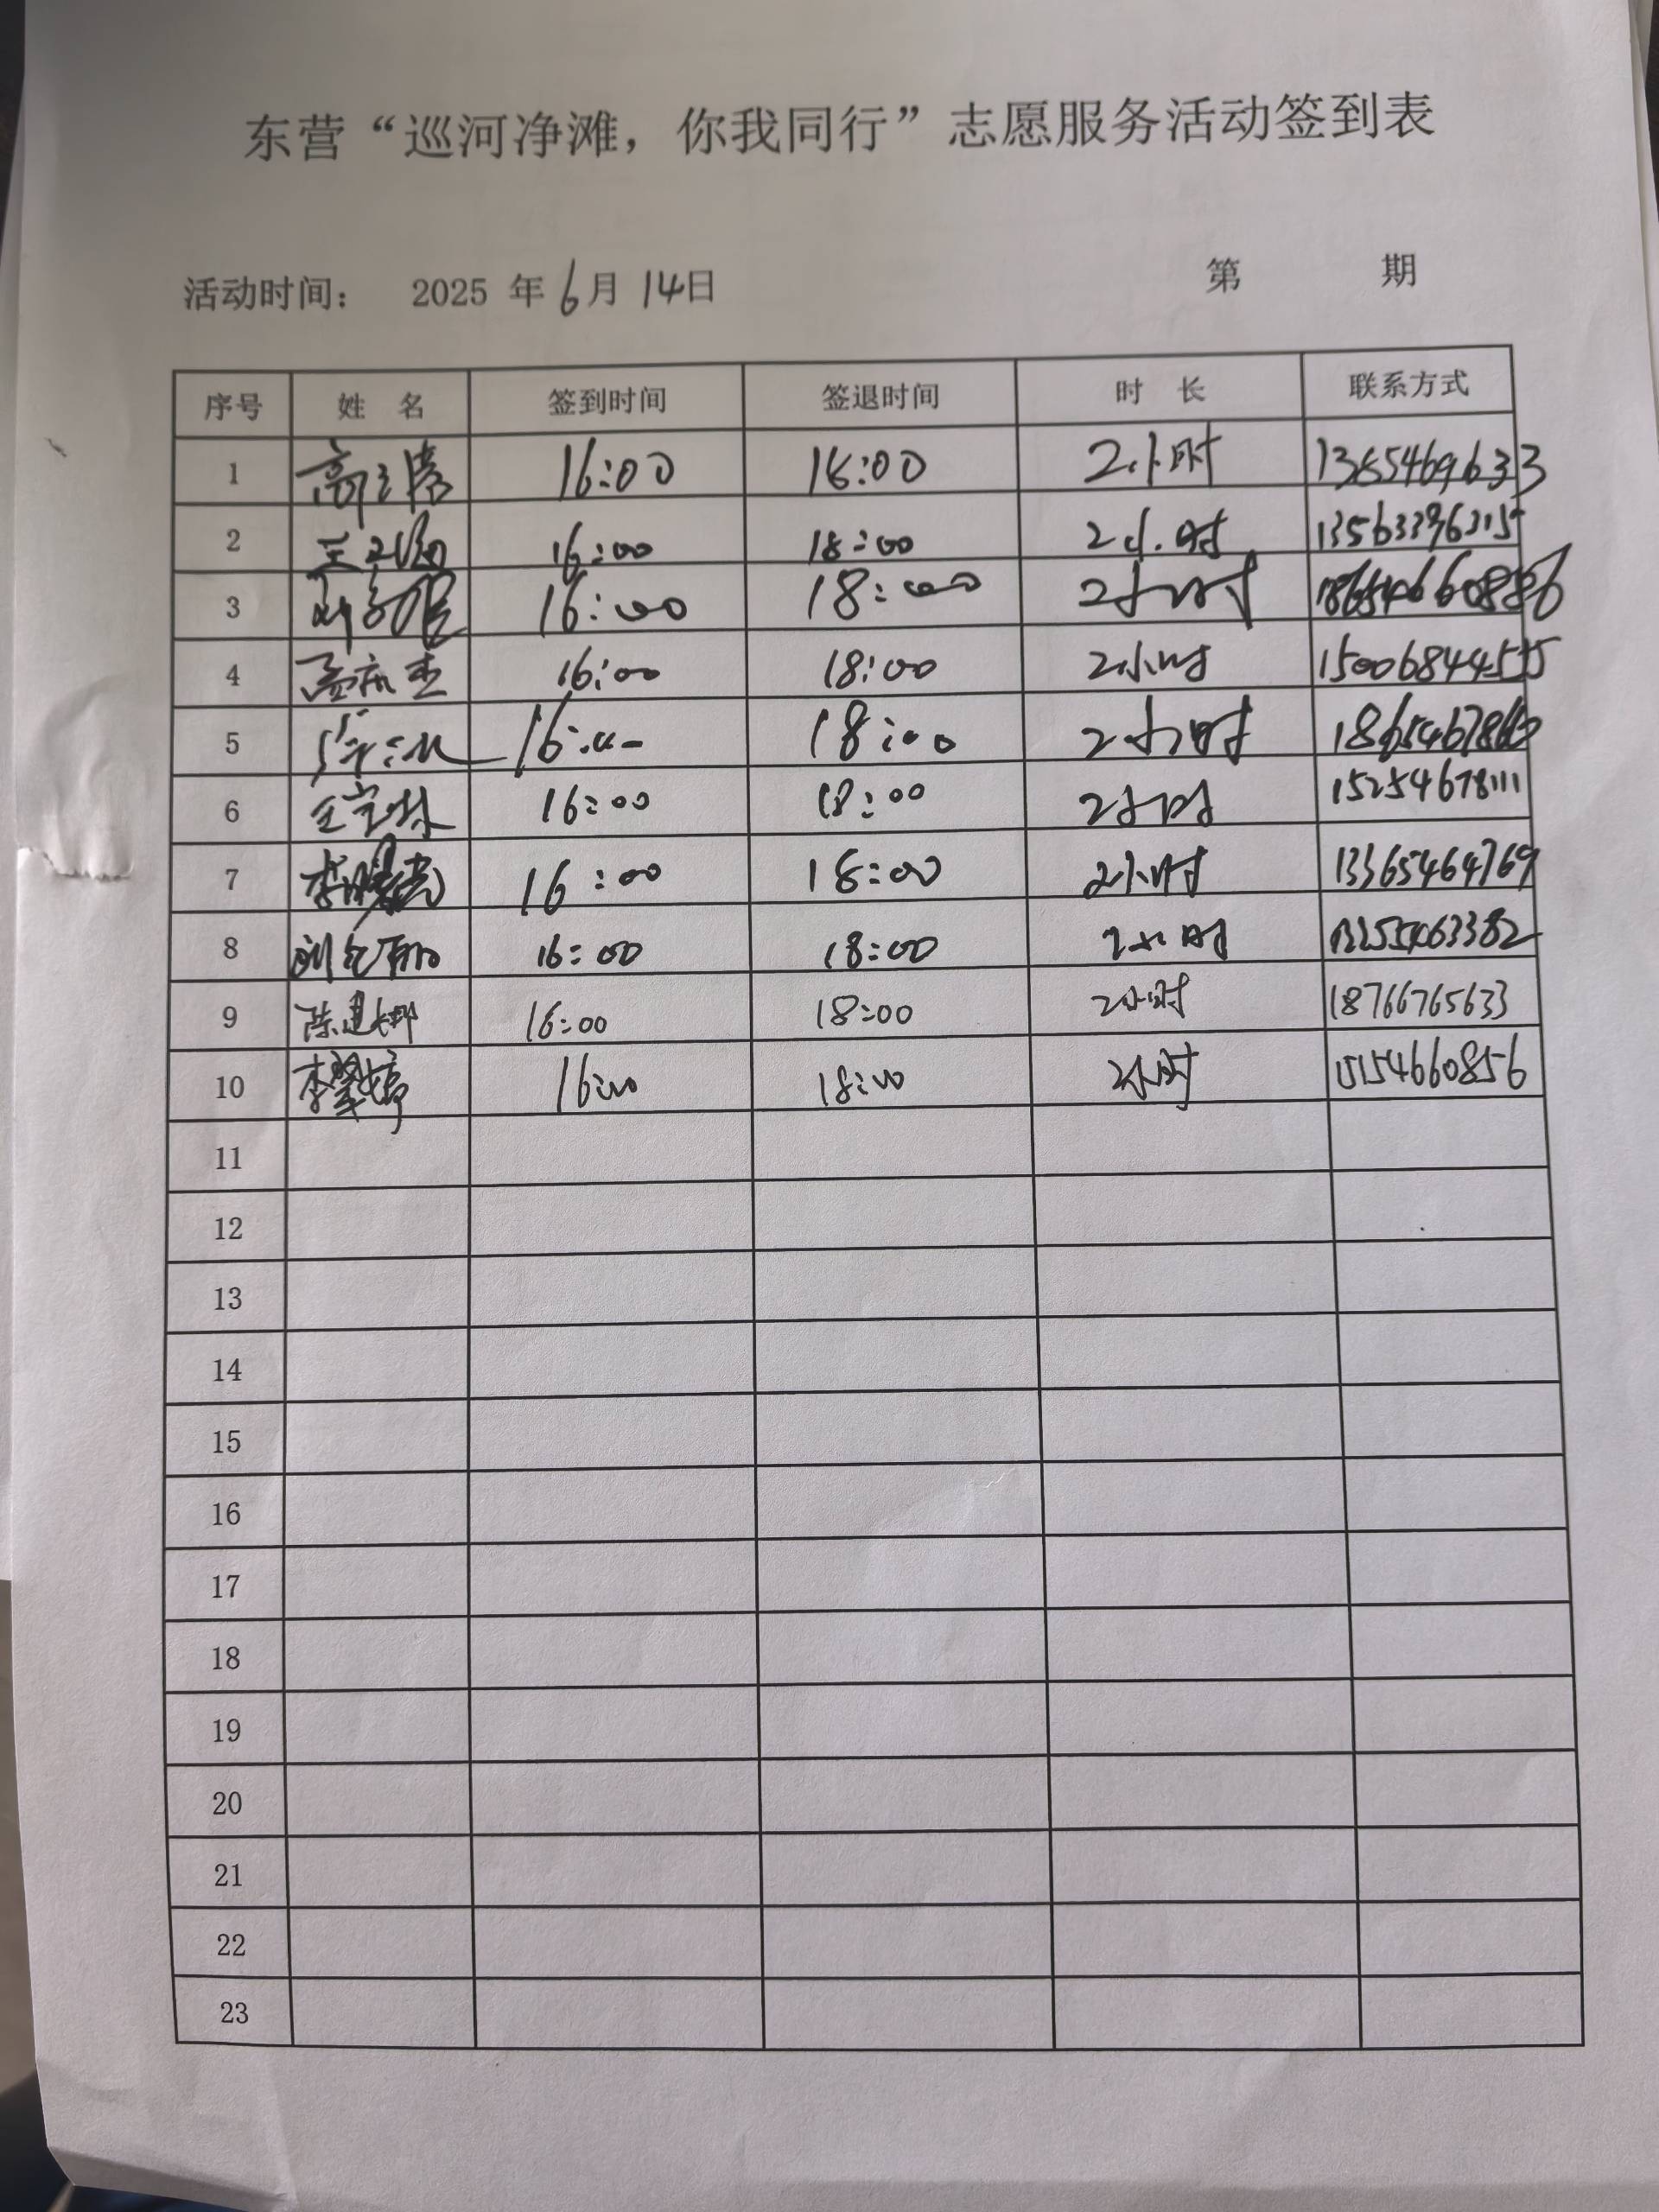 东营“巡河净滩，你我同行”志愿服务活动签到表
活动时间： 2025 年 6 月 14 日 第 期
序号 姓 名 签到时间 签退时间 时 长 联系方式
1 16:00 18:00 2小时 13854696333
2 16:00 18:00 2小时
3 16:00 18:00 2小时
4 孟庆杰 16:00 18:00 2小时 15006844535
5 16:00 18:00 2小时
6 王宝林 16:00 18:00 2小时 15254678111
7 16:00 18:00 2小时 13365464769
8 16:00 18:00 2小时
9 陈建娜 16:00 18:00 2小时 18766765633
10 16:00 18:00 2小时 15154660856
11
12
13
14
15
16
17
18
19
20
21
22
23